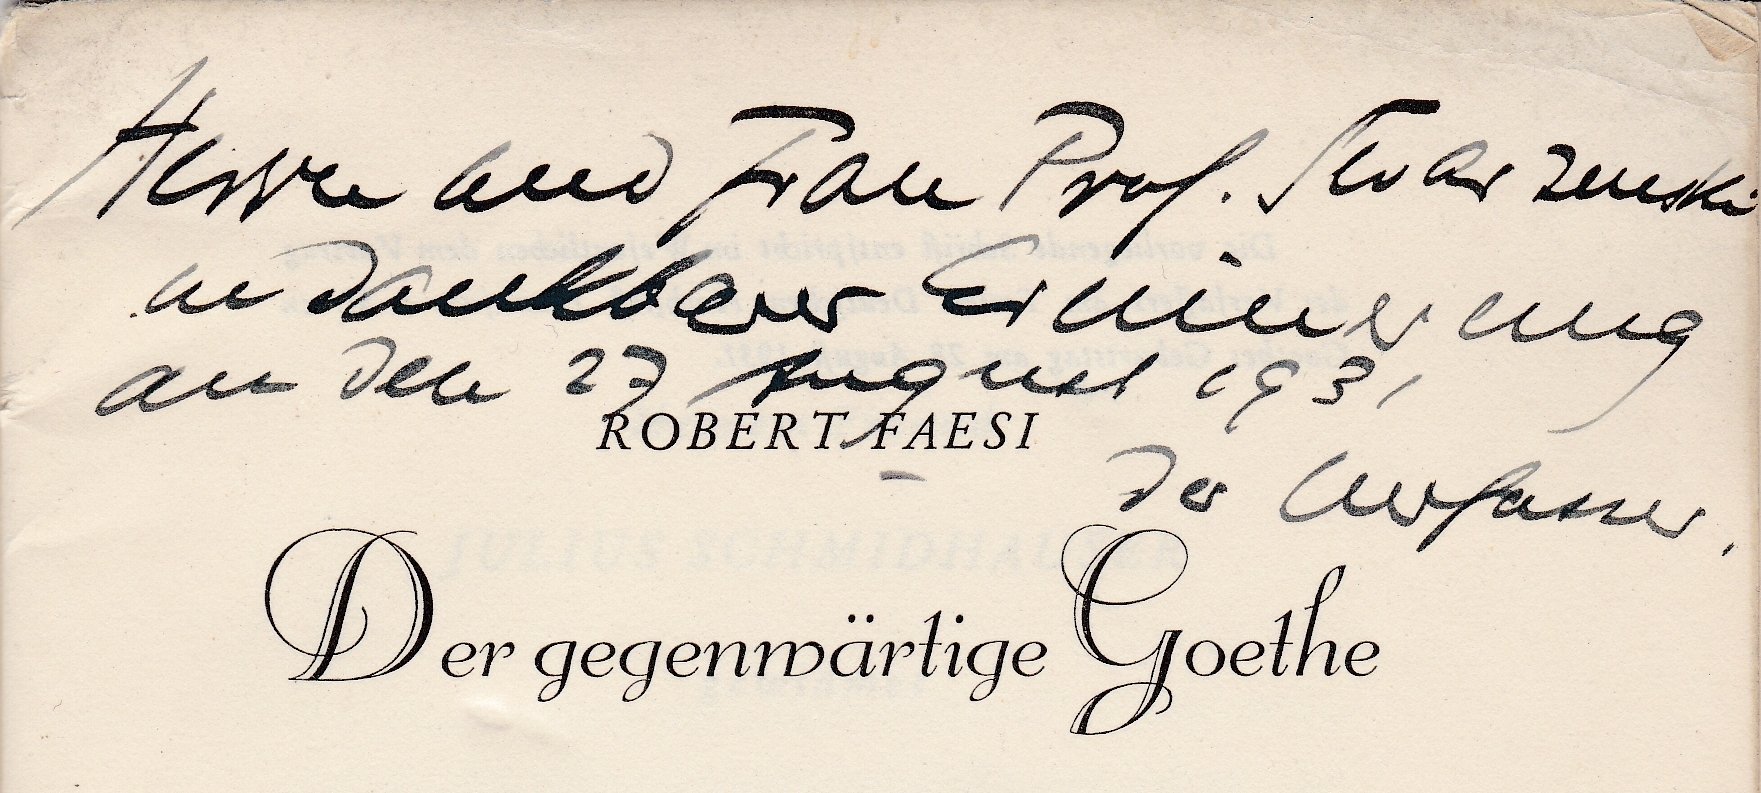 Herrn und Frau Prof. Swarzenski
in dankbarer Erinnerung
an den 27 August 1931
ROBERT FAESI
Der Verfasser.
Der gegenwärtige Goethe